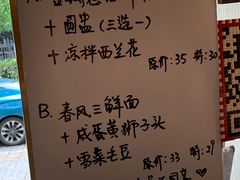 + 圆盅（三选一）
+ 凉拌西兰花
原价：35 特：30
B. 春风三鲜面
+ 咸蛋黄狮子头
+ 雪菜毛豆
原价：33 特：29